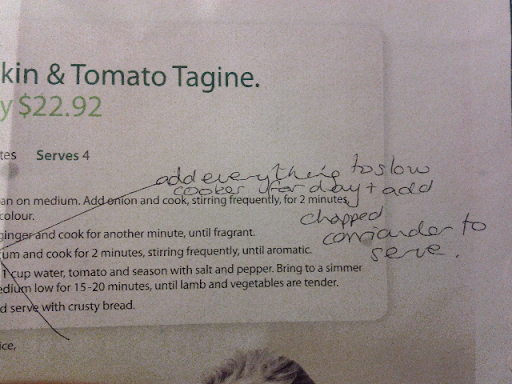 kin & Tomato Tagine.
y $22.92
tes Serves 4
add everything to slow
cooker for day + add
chopped
corriander to
serve.
an on medium. Add onion and cook, stirring frequently, for 2 minutes,
colour.
ginger and cook for another minute, until fragrant.
um and cook for 2 minutes, stirring frequently, until aromatic.
1 cup water, tomato and season with salt and pepper. Bring to a simmer
edium low for 15-20 minutes, until lamb and vegetables are tender.
d serve with crusty bread.
ice.